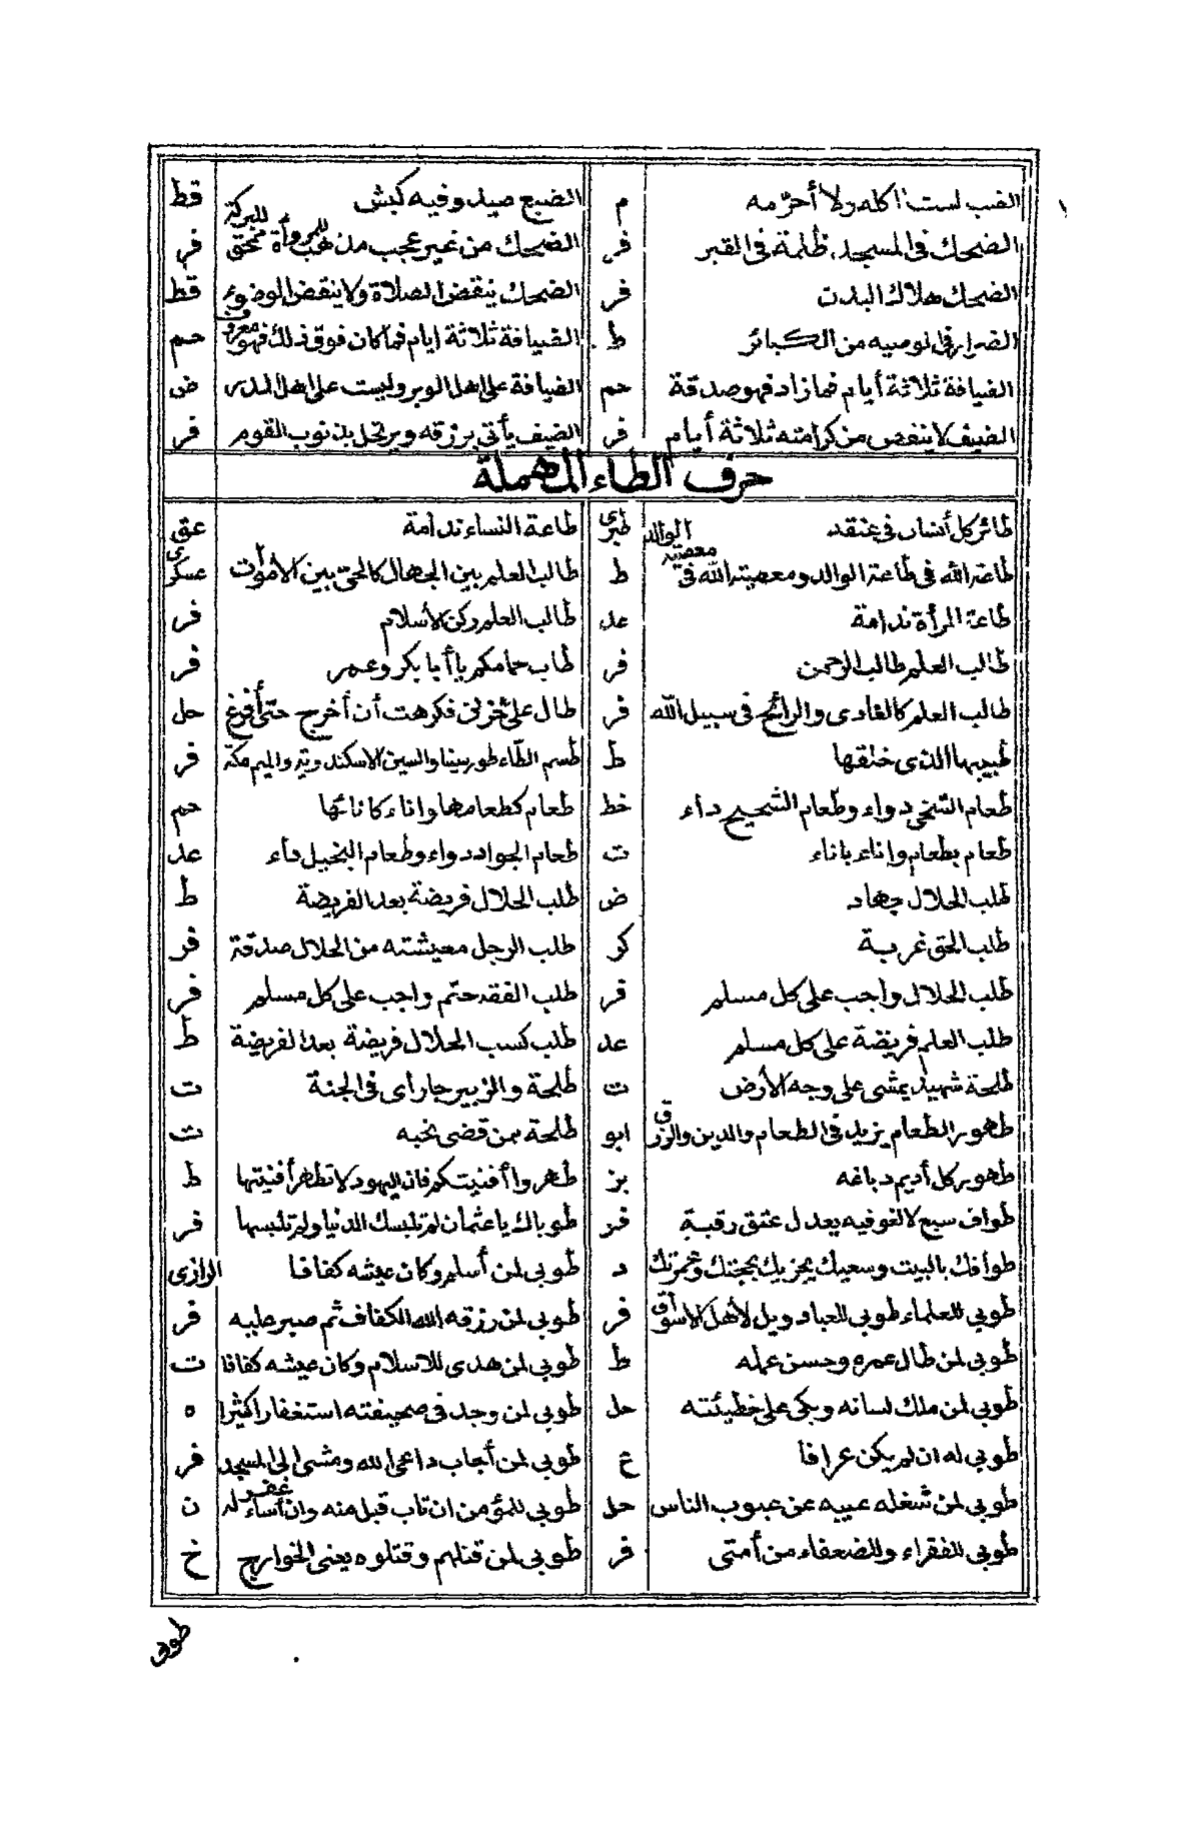 الضب لست آكله ولا أحرمه م الضبع صيد وفيه كبش قط
الضحك في المسجد ظلمة في القبر فر الضحك من غير عجب مذهب للمروأة ممحق للبركة فر
الضحك هلاك البدن فر الضحك ينقض الصلاة ولا ينقض الوضوء قط
الضرار في الوصيه من الكبائر ط الضيافة ثلاثة ايام فما كان فوق ذلك فهو معروف حم
الضيافة ثلاثة أيام فما زاد فهو صدقة حم الضيافة على اهل الوبر وليست على اهل المدر ض
الضيف لا ينقص من كرامته ثلاثة أيام فر الضيف يأتى برزقه ويرتحل بذنوب القوم فر
حرف الطاء المهملة
طائر كل أنسان في عنقه طبرى طاعة النساء ندامة عق
طاعة الله في طاعة الوالد ومعصية الله في معصية الوالد ط طالب العلم بين الجهال كالحى بين الأموات عسكرى
طاعة المرأة ندامة عد طالب العلم ركن الأسلام فر
طالب العلم طالب الرحمن فر طاب حمامكم يا أبا بكر وعمر فر
طالب العلم كالغادى والرائح في سبيل الله فر طال على حزبى فكرهت أن أخرج حتى أفرغ حل
طبيبها الذى خلقها ط طسم الطاء طور سينا والسين الاسكندرية والميم مكة فر
طعام السخى دواء وطعام الشحيح داء خط طعام كطعامها واناء كانائها حم
طعام بطعام وإناء بإناء ت طعام الجواد دواء وطعام البخيل داء عد
طلب الحلال جهاد ض طلب الحلال فريضة بعد الفريضة ط
طلب الحق غربة كر طلب الرجل معيشته من الحلال صدقة فر
طلب الحلال واجب على كل مسلم فر طلب الفقه حتم واجب على كل مسلم فر
طلب العلم فريضة على كل مسلم عد طلب كسب الحلال فريضة بعد الفريضة ط
طلحة شهيد يمشى على وجه الأرض ت طلحة والزبير جاراى في الجنة ت
طهور الطعام يزيد في الطعام والدين والرزق ابو طلحة ممن قضى نحبه ت
طهور كل أديم دباغه بز طهروا أفنيتكم فان اليهود لا تطهر أفنيتها ط
طواف سبع لا لغو فيه يعدل عتق رقبة فر طوباك يا عثمان لم تلبسك الدنيا ولم تلبسها فر
طوافك بالبيت وسعيك يجزيك بحجتك وعمرتك د طوبى لمن أسلم وكان عيشه كفافا الرازى
طوبى للعلماء طوبى للعباد ويل لأهل الأسواق فر طوبى لمن رزقه الله الكفاف ثم صبر عليه فر
طوبى لمن طال عمره وحسن عمله ط طوبى لمن هدى للاسلام وكان عيشه كفافا ت
طوبى لمن ملك لسانه وبكى على خطيئته حل طوبى لمن وجد في صحيفته استغفارا كثيرا ه
طوبى له ان لم يكن عرافا ع طوبى لمن أجاب داعى الله ومشى الى المسجد فر
طوبى لمن شغله عيبه عن عيوب الناس حل طوبى للمؤمن ان تاب قبل منه وان أساء غفر له ن
طوبى للفقراء وللضعفاء من أمتى فر طوبى لمن قتلهم وقتلوه يعنى الخوارج خ
طوبى